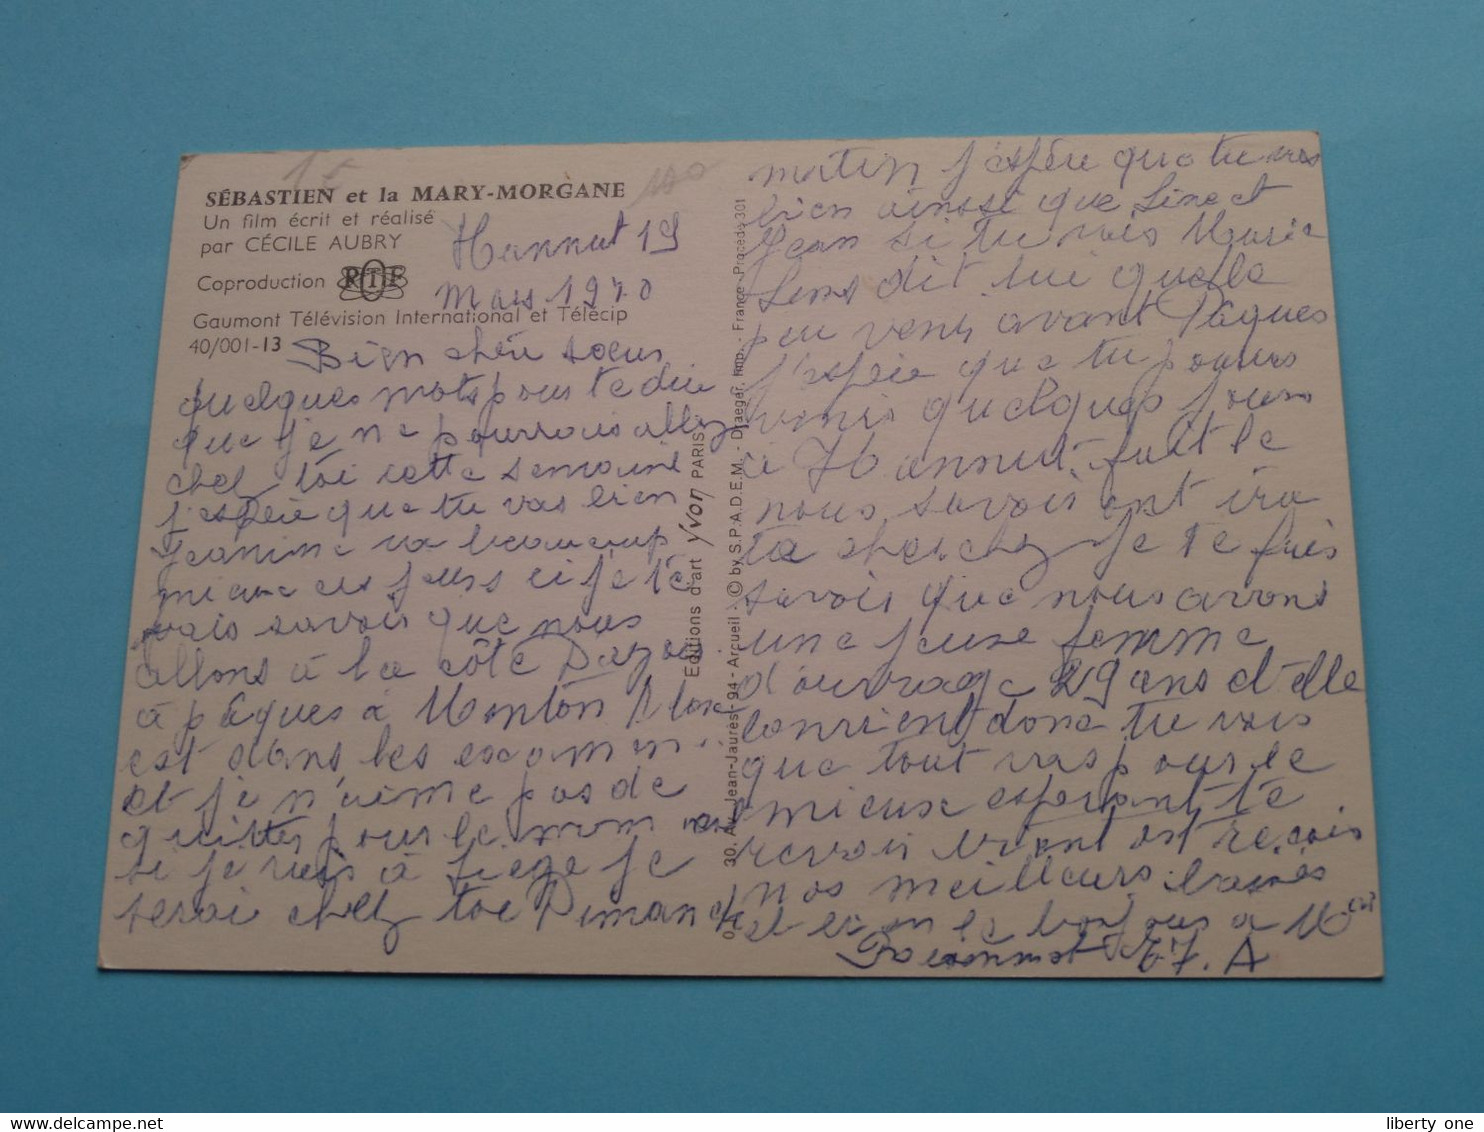 SÉBASTIEN et la MARY-MORGANE
Un film écrit et réalisé
par CÉCILE AUBRY
Coproduction ORTF
Gaumont Télévision International et Télécip
40/001-13
Hannut 19
Mars 1970
Bien chère soeur
quelques mots pour te dire
que je ne pourrais allez
chez toi cette semaine
j'espère que tu vas bien
Jeannine va beaucoup
mieux ces jours ci je te
vais savoir que nous
allons à la côte Dazur
à pâques à Menton
est dans les examen
et je n'aime pas de
quitter pour le moment
si je vais à Liege je
serai chez toi Dimanche
matin j'espère que tu vas
bien ainsi que Line et
Jean si tu vois Marie
dit lui quelle
peu venir avant Pâques
j'espère que tu pourras
venir quelques jours
ci Hannut fait le
nous savoir ont ira
te cherchez je te fais
savoir que nous avons
une jeune femme
d'ouvrage 29 ans et elle
convient donc tu vois
que tout vas pour le
mieux esperant te
revoir bientot reçois
nos meilleurs baisés
et bien le bonjour à
J. A
Editions d'art Yvon PARIS
30, Av. Jean-Jaurès - 94 - Arcueil - © by S.P.A.D.E.M. - Draeger, Imp. - France - Procédé 301
liberty one